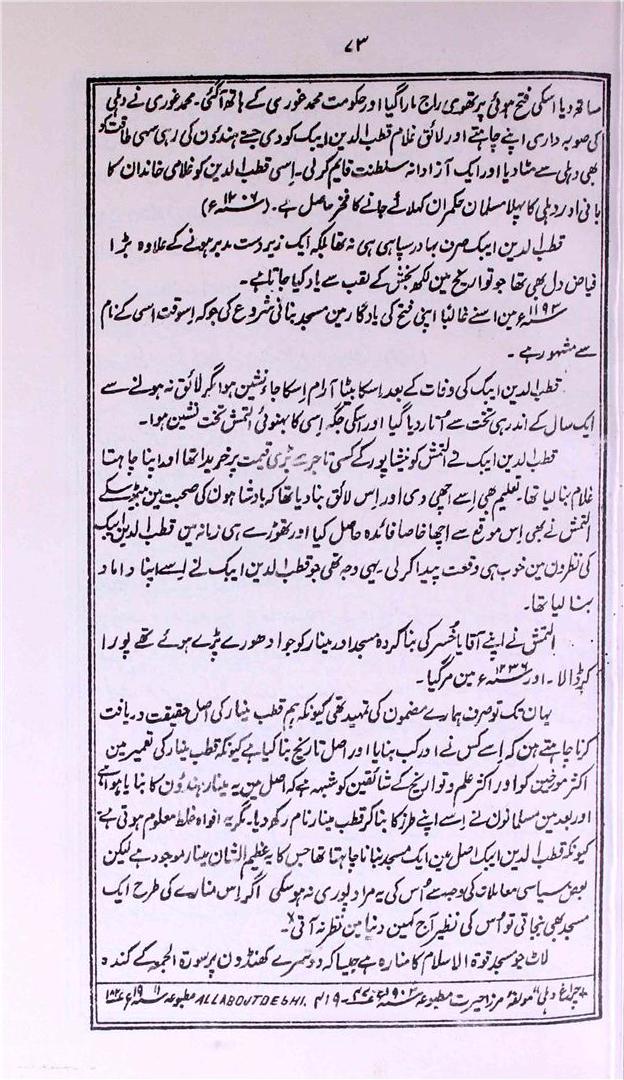 ۷۳
ساتھ دیا اسکی فتح ہوئی پرتھوی راج مارا گیا اور حکومت محمد غوری کے ہاتھ آگئی۔ محمد غوری نے دہلی
کی صوبہ داری اپنے چاہتے اور لائق غلام قطب الدین ایبک کو دی جسنے ہندؤن کی رہی سہی طاقت کو
بھی دہلی سے مٹا دیا اور ایک آزادانہ سلطنت قایم کر لی۔ اسی قطب الدین کو غلامی خاندان کا
بانی اور دہلی کا پہلا مسلمان حکمران کہلائے جانے کا فخر حاصل ہے۔ (۱۲۰۶؁ء)
قطب الدین ایبک صرف بہادر سپاہی ہی نہ تھا بلکہ ایک زبردست مدبر ہونے کے علاوہ بڑا
فیاض دل بھی تھا جو تواریخ مین لکھ بخش کے لقب سے یاد کیا جاتا ہے۔
۱۱۹۳؁ء مین اسنے غالباً اپنی فتح کی یادگار مین مسجد بنانی شروع کی جو کہ اسوقت اسی کے نام
سے مشہور ہے۔
قطب الدین ایبک کی وفات کے بعد اسکا بیٹا آرام اسکا جاءنشین ہوا مگر لائق نہ ہونے سے
ایک سال کے اندر ہی تخت سے اُتار دیا گیا اور اسکی جگہ اسی کا بہنوئی التمش تخت نشین ہوا۔
قطب الدین ایبک نے التمش کو نیشاپور کے کسی تاجر سے بڑی قیمت پر خریدا تھا اور اپنا چاہتا
غلام بنا لیا تھا۔ تعلیم بھی اسے اچھی دی اور اس لائق بنا دیا تھا کہ بادشاہون کی صحبت مین بیٹھ سکے
التمش نے بھی اس موقع سے اچھا خاصا فائدہ حاصل کیا اور تھوڑے ہی زمانہ مین قطب الدین ایبک
کی نظرون مین خوب ہی وقعت پیدا کر لی۔ یہی وجہ تھی جو قطب الدین ایبک نے اسے اپنا داماد
بنا لیا تھا۔
التمش نے اپنے آقا یا خُسر کی بنا کردہ مسجد اور مینار کو جو ادھورے پڑے ہوئے تھے پورا
کر ڈالا۔ اور ۱۲۳۶؁ء مین مر گیا۔
یہان تک تو صرف ہمارے مضمون کی تمہید تھی کیونکہ ہم قطب مینار کی اصل حقیقت دریافت
کرنا چاہتے ہن کہ اسے کس نے اور کب بنایا اور اصل تاریخ بنا کیا ہے کیونکہ قطب مینار کی تعمیر مین
اکثر مورخین کو اور اکثر علم و تواریخ کے شائقین کو شبہہ ہے کہ اصل مین یہ مینار ہندؤن کا بنایا ہوا ہے
اور بعد مین مسلمانون نے اسے اپنے طرز کا بنا کر قطب مینار نام رکھ دیا۔ مگر یہ افواہ غلط معلوم ہوتی ہے
کیونکہ قطب الدین ایبک اصل مین ایک مسجد بنانا چاہتا تھا جس کا یہ عظیم الشان مینار موجود ہے لیکن
بعض سیاسی معاملات کی وجہ سے اُس کی یہ مراد پوری نہ ہو سکی اگر اس منارے کی طرح ایک
مسجد بھی بنجاتی تو اُس کی نظیر آج کہین دنیا مین نظر نہ آتی ×
لاٹ جو مسجد قوۃ الاسلام کا منارہ ہے جیسا کہ دوسرے کھنڈون پر سورۃ الجمعہ کے کندہ
"چراغ دہلی" مولفہ مرزا حیرت مطبوعہ ۱۹۰۳؁ء ALL ABOUT DELHI. مطبوعہ